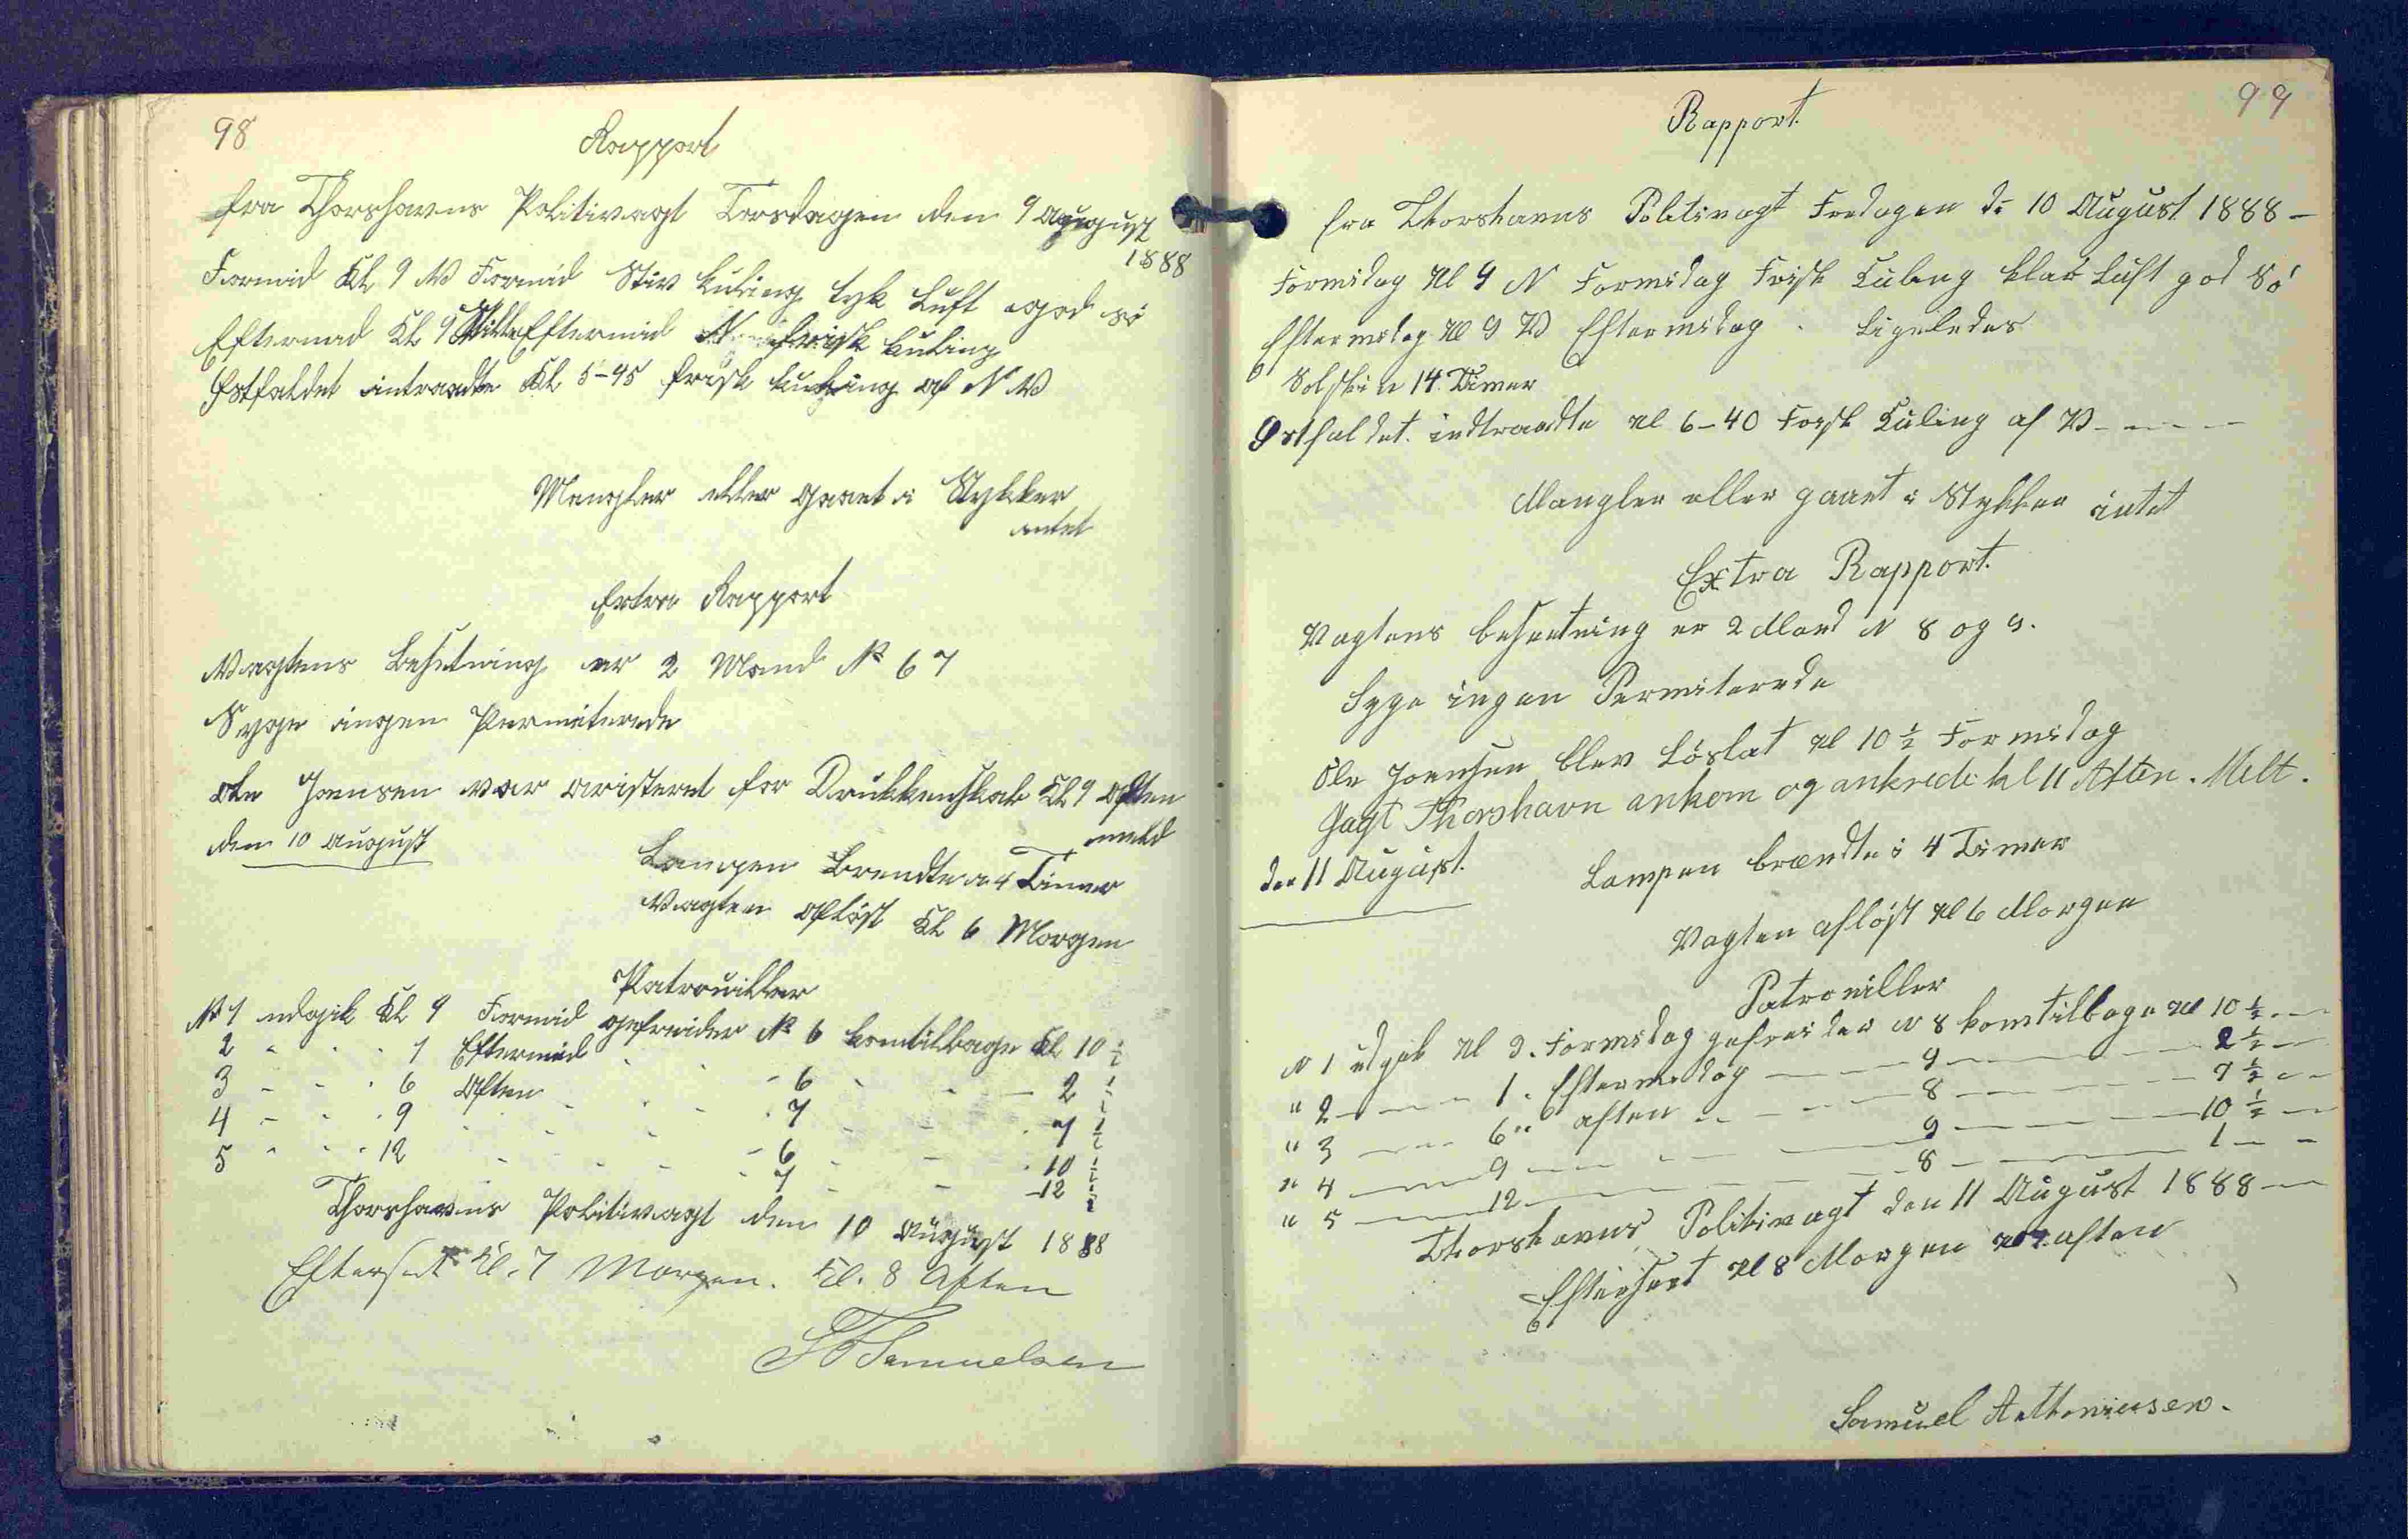 98
Rapport
fra Thorshavns Politivagt Torsdagen den 9 August
1888
Formid Kl 9 V Formid Stiv Kuling tyk Luft og god sö
Eftermid Kl 9 Stille Eftermid N frisk Kuling
Östfaldet intraadte Kl 5-45 frisk Kuling af N V
Mangler eller gaaet i Stykker
intet
Extra Rapport
Vagtens Besetning er 2 Mand No 6 7
Syge ingen Permiterede
Ole Joensen var aristeret for Drukkenskab Kl 9 Aften
meld
den 10 August
Lampen Brendte i 4 Timer
Vagten aflöst Kl 6 Morgen
Patrouiller
No 1 udgik Kl 9 Formid gefreider No 6 komtilbage Kl 10 1/2
2 " " " 1 Eftermid " " - 6 " - 2 1/2
3 - - " 6 Aften " - - " 7 - - " 7 1/2
4 - " " 9 " " - - - 6 - - " 10 1/2
5 " " " 12 - - - - " 7 - - - 12 1/2
Thorshavns Politivagt den 10 August 1888
Efterset Kl. 7 Morgen. Kl. 8 Aften
Samuelsen
99
Rapport.
fra Thorshavns Politivagt Fredagen d: 10 August 1888 -
Formidag Kl 9 N Formidag Frisk Kuling klar Luft god Sö
Eftermidag Kl 9 V Eftermidag . Ligeledes
Solskin 14. Timer
Östfaldet. indtraadte Kl 6-40 Forsk Kuling af V - - - -
Mangler eller gaaet i Stykker intet
Extra Rapport.
Vagtens besaetning er 2 Mand N 8 og 9.
Syge ingen Permiterede
Ole Joensen blev Löslat Kl 10 1/2 Formidag
Jagt Thorshavn ankom og ankrede kl 11 Aften. Melt.
den 11 August.
Lampen brændte i 4 Timer
Vagten aflöst Kl 6 Morgen
Patrouiller
N 1 udgik Kl 9. Formidag gefreider N 8 komtilbage Kl 10 1/2 . -
" 2 - - - 1. Eftermidag - - - 9 - - - 2 1/2 -
" 3 - - - 6 " aften - - - 8 - - - 7 1/2 - -
" 4 - - - 9 - - - 9 - - - 10 1/2 -
" 5 - - - 12 - - - 8 - - - 1 - -
Thorshavns Politivagt den 11 August 1888 -
Efterseet Kl 8 Morgen aften
Samuel Anthoniusen.